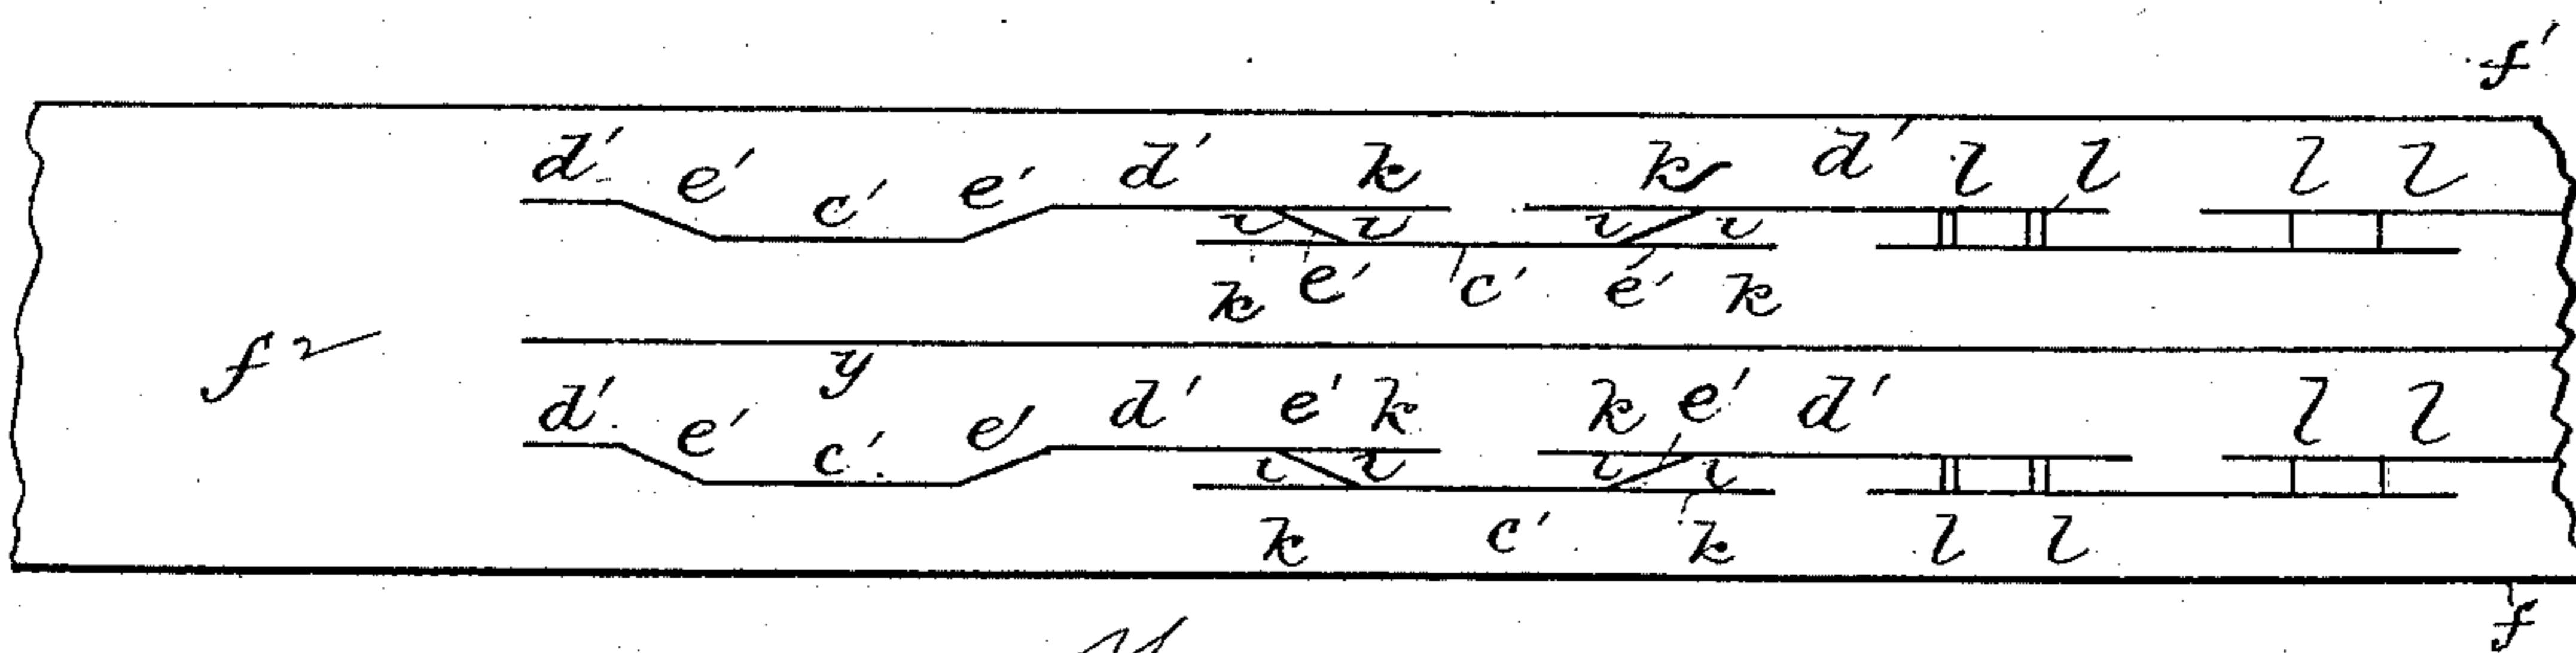 f'
d' e' c' e' d' k k d' l l l l
i i i i
k e' c' e' k
f2
y
d' e' c' e' d' e' k k e' d' l l
i i i i
k c' k l l
f